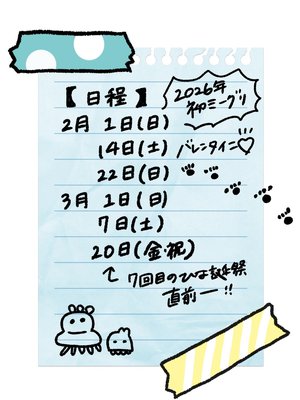 【日程】
2026年
初ミーグリ
2月 1日(日)
14日(土) バレンタイン♡
22日(日)
3月 1日(日)
7日(土)
20日(金・祝)
7回目のひな誕祭
直前ー!!